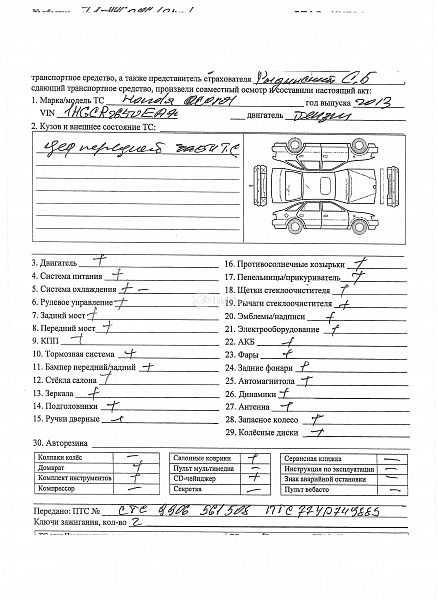 транспортное средство, а также представитель страхователя
сдающий транспортное средство, произвели совместный осмотр и составили настоящий акт:
1. Марка/модель ТС год выпуска 2013
VIN двигатель Бензин
2. Кузов и внешнее состояние ТС:
перед
3. Двигатель +
4. Система питания +
5. Система охлаждения + –
6. Рулевое управление +
7. Задний мост +
8. Передний мост +
9. КПП +
10. Тормозная система +
11. Бампер передний/задний +
12. Стёкла салона +
13. Зеркала +
14. Подголовники +
15. Ручки дверные +
16. Противосолнечные козырьки +
17. Пепельницы/прикуриватель +
18. Щетки стеклоочистителя +
19. Рычаги стеклоочистителя +
20. Эмблемы/надписи +
21. Электрооборудование +
22. АКБ +
23. Фары +
24. Задние фонари +
25. Автомагнитола +
26. Динамики +
27. Антенна +
28. Запасное колесо +
29. Колёсные диски +
30. Авторезина
Колпаки колёс – Салонные коврики + Сервисная книжка –
Домкрат + Пульт мультимедиа – Инструкция по эксплуатации –
Комплект инструментов + CD-чейнджер + Знак аварийной остановки –
Компрессор – Секретка – Пульт вебасто –
Передано: ПТС № СТС 9906 561508 ПТС
Ключи зажигания, кол-во 2